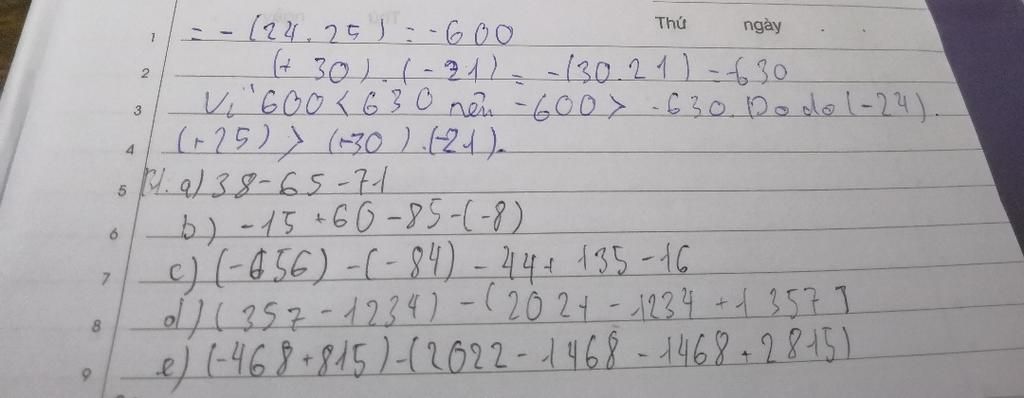 Thứ ngày . .
1 = - (24 . 25) = -600
2 (+ 30) . (-21) = -(30.21) = -630
3 Vì 600 < 630 nên -600 > -630. Do do (-24).
4 (+25) > (+30) . (-21).
5 a) 38 - 65 - 71
6 b) -15 + 60 - 85 - (-8)
7 c) (-656) - (-84) - 44 + 135 - 16
8 d) (357 - 1234) - (2021 - 1234 + 1357)
9 e) (-468 + 815) - (2022 - 1468 - 1468 + 2815)